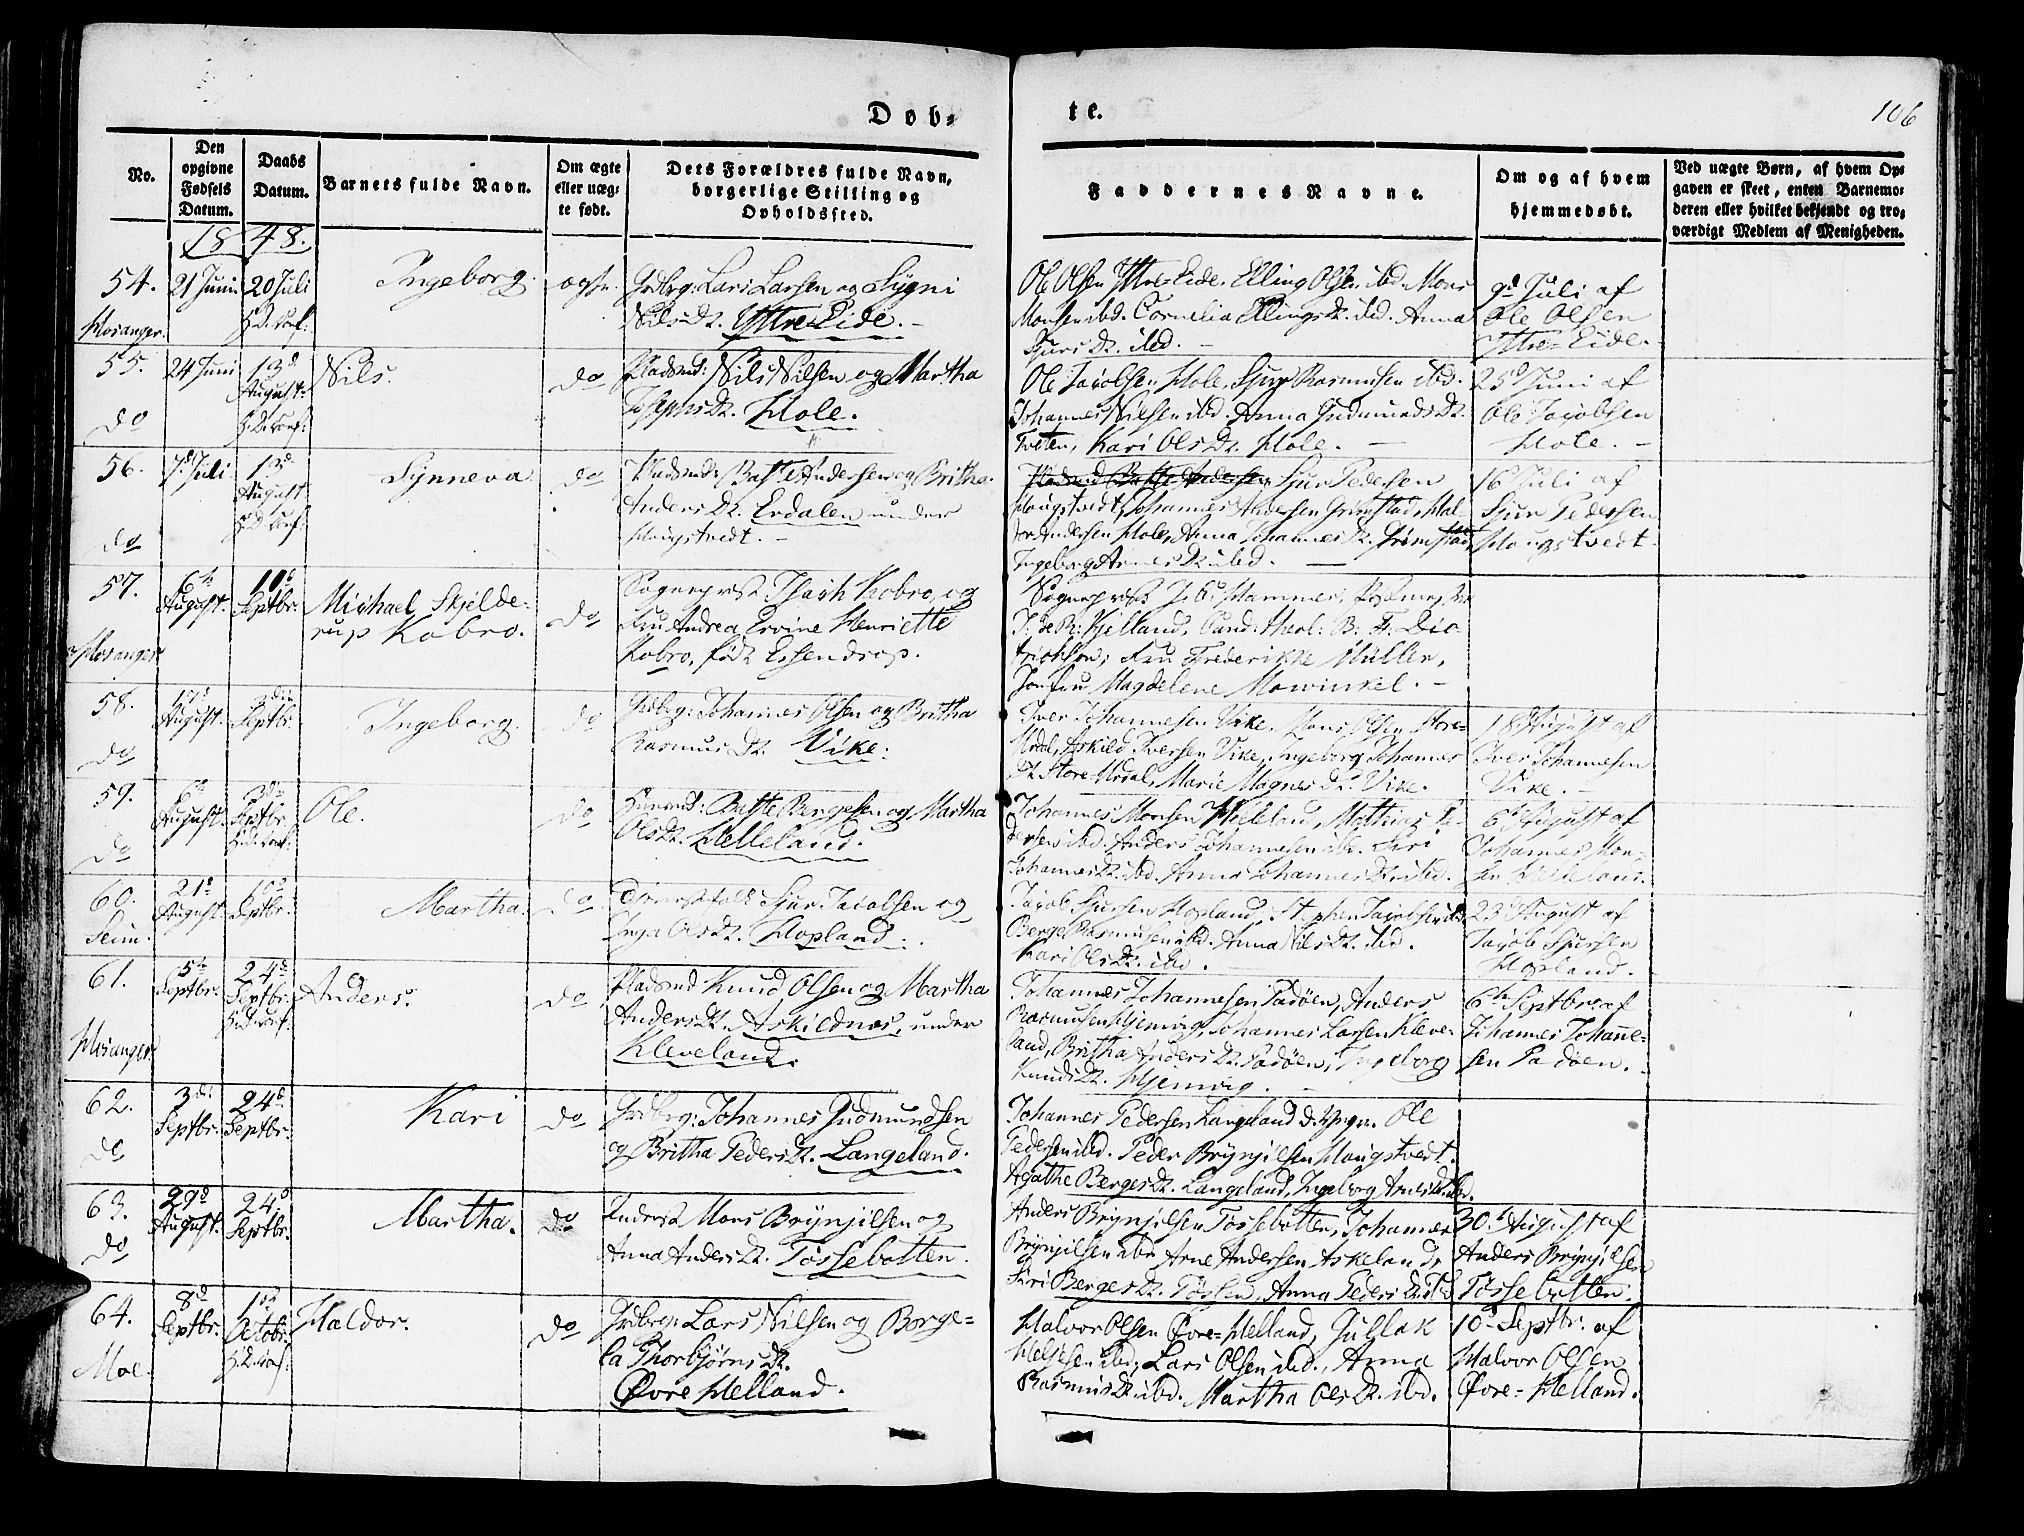 Døb-
te.
106
No.
Den opgivne Fødsels Datum.
Daabs Datum.
Barnets fulde Navn.
Om ægte eller uæg-te født.
Dets Forældres fulde Navn, borgerlige Stilling og Opholdssted.
Faddernes Navne.
Om og af hvem hjemmedøbt.
Ved uægte Børn, af hvem Op-
gaven er skeet, enten Barnemo-
deren eller hvilket bekjendt og tro-
værdigt Medlem af Menigheden.
1848.
54.
Hosanger.
21 Juni
20 Juli
Ingeborg.
Lars Larsen og Sygni
Nilsdt. Yttre-Eide.
Ole Olsen Yttre-Eide. Elling Olsen ibd. Mons
Monsen ibd. Cornelia Ellingsdt. ibd. Anna
Sjursdt. ibd.
9d Juli af
Ole Olsen
Yttre-Eide.
55.
do
24 Juni
13d
August
Nils.
do
Pladsmd: Nils Nilsen og Martha
Josephsdt. Hole.
Ole Jacobsen Hole, Sjur Rasmusen ibd.
Johannes Nilsen ibd. Anna Gudmundsdt.
Tveten, Kari Olsdt. Hole.
25d Juni af
Ole Jacobsen
Hole.
56.
do
7d Juli
13d
August
Synneva
do
Pladsmd: Baste Andersen og Britha
Andersdt. Erdalen under
Mongstvedt.
Pladsmd Baste Andersen, Sjur Pedersen
Mongstvedt, Johannes Andersen Grimstad, Hal-
dor Andersen Hole, Anna Johannesdt. Grimstad,
Ingeborg Arnesdt. ibd.
16d Juli af
Sjur Pedersen
Mongstvedt.
57.
Hosanger.
6te
August.
10d
Septbr.
Michael Skjelde-
rup Kobro.
do
Sogneprest Isach Kobro, og
Fru Andrea Ervine Henriette
Kobro, født Essendrop.
Sogneprest Hammer,
Kjelland, Cand: theol: B. F. Die-
trichson, Fru Frederikke Müller,
Jomfru Magdelene Mowinkel.
58.
do
17d
August.
3die
Septbr.
Ingeborg.
do
Johannes Olsen og Britha
Rasmusdt. Vike.
Iver Johannesen Vike, Mons Olsen Store-
Urdal, Askild Iversen Vike, Ingeborg Johannes
dt. Store-Urdal, Marie Magnesdt. Vike.
18d August af
Iver Johannesen
Vike.
59.
do
6te
August.
3die
Septbr.
Ole.
do
Baste Bergesen og Martha
Olsdt. Helleland.
Johannes Monsen Helleland, Mathias Pe-
dersen ibd. Anders Johannesen abr. Siri
Johannesdt. ibd. Anna Johannesdt. ibd.
6te August af
Johannes Mon-
sen Helleland.
60.
Seim.
21d
August
10d
Septbr.
Martha.
do
Sjur Jacobsen og
Inga Olsdt. Hopland.
Jacob Sjursen Hopland, Stephen Jacobsen ibd.
Berge Rasmusen ibd. Anna Nilsdt. ibd.
Kari Olsdt. ibd.
23d August af
Jacob Sjursen
Hopland.
61.
Hosanger
5te
Septbr.
24d
Septbr.
Anders.
do
Pladsmd Knud Olsen og Martha
Andersdt. Askildnæs, under
Kleveland.
Johannes Johannesen Padøen, Anders
Rasmusen Hjemvig, Johannes Larsen Kleve-
land, Britha Andersdt. Padøen, Ingeborg
Knudsdt. Hjemvig.
6te Septbr. af
Johannes Johanne-
sen Padøen.
62.
do
3die
Septbr.
24d
Septbr.
Kari
do
Johannes Gudmundsen
og Britha Pedersdt. Langeland.
Johannes Pedersen Langeland d. yngr. Ole
Pedersen ibd. Peder Brynjilsen Mongstvedt.
Agathe Bergesdt. Langeland, Ingeborg Arnesdt. ibd.
63.
do
29d
August.
24d
Septbr.
Martha.
do
Mons Brynjilsen og
Anna Andersdt. Tossebotten.
Anders Brynjilsen Tossebotten, Johannes
Brynjilsen abr. Arne Andersen Askeland,
Siri Bergesdt. Tossen, Anna Pedersdt.
30te August af
Anders Brynjilsen
Tossebotten.
64.
Moe.
8d
Septbr.
1ste
Octobr.
Haldor.
do
Lars Nilsen og Borge-
la Thorbjørnsdt.
Øvre Helland.
Halvor Olsen Øvre-Helland, Gullak
Helgesen ibd, Lars Olsen ibd., Anna
Rasmusdt. ibd. Martha Olsdt. ibd.
10d Septbr. af
Halvor Olsen
Øvre-Helland.